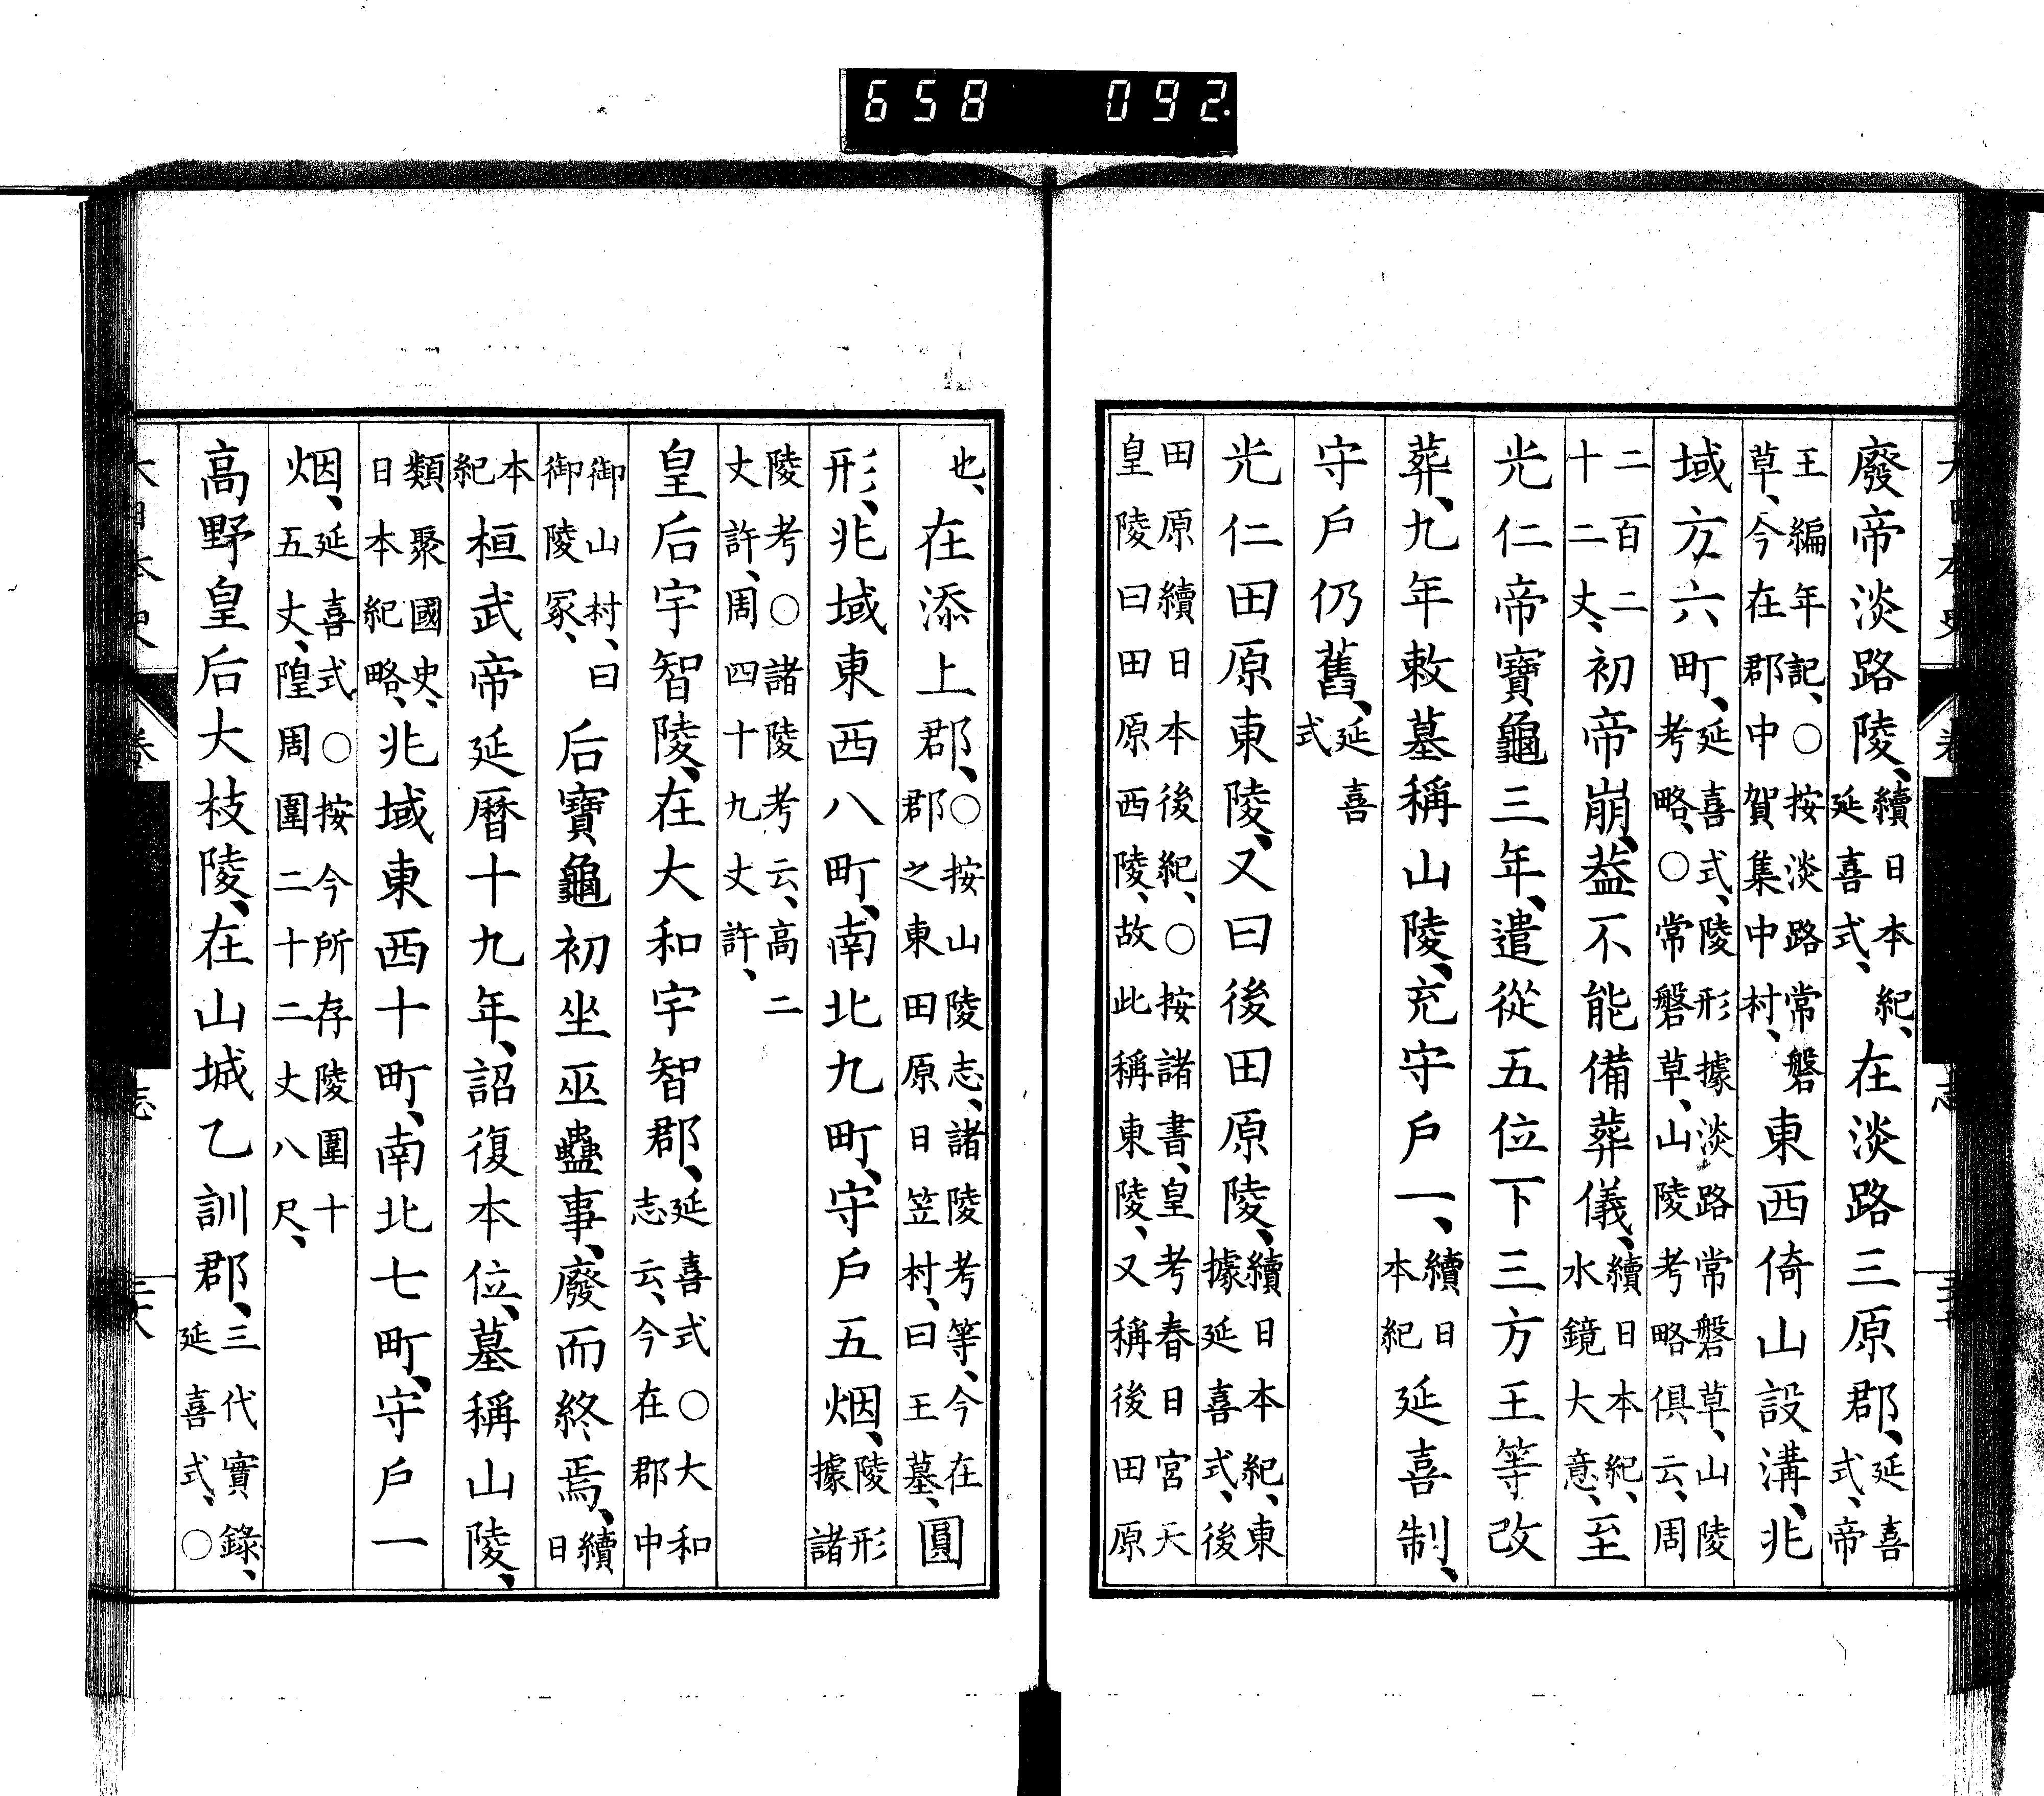 658 092.
廢帝淡路陵、續日本紀、延喜式、在淡路三原郡、延喜式、帝
王編年記、〇按淡路常磐草、今在郡中賀集中村、東西倚山設溝、兆
域方六町、延喜式、陵形據淡路常磐草、山陵考略、〇常磐草、山陵考略俱云、周
二百二十二丈、初帝崩、葢不能備葬儀、續日本紀、水鏡大意、至
光仁帝寶龜三年、遣從五位下三方王等改
葬、九年敕墓稱山陵、充守戶一、續日本紀延喜制、
守戶仍舊、延喜式
光仁田原東陵、又曰後田原陵、續日本紀、東據延喜式、後
田原續日本後紀、〇按諸書、皇考春日宮天皇陵曰田原西陵、故此稱東陵、又稱後田原
也、在添上郡、〇按山陵志、諸陵考等、今在郡之東田原日笠村、曰王墓、圓
形、兆域東西八町、南北九町、守戶五烟、陵形據諸
陵考〇諸陵考云、高二丈許、周四十九丈許、
皇后宇智陵、在大和宇智郡、延喜式〇大和志云、今在郡中
御山村、曰御陵冢、后寶龜初坐巫蠱事、廢而終焉、續日
本紀桓武帝延曆十九年、詔復本位、墓稱山陵、
類聚國史、日本紀略、兆域東西十町、南北七町、守戶一
烟、延喜式〇按今所存陵圍十五丈、隍周圍二十二丈八尺、
高野皇后大枝陵、在山城乙訓郡、三代實錄、延喜式、〇